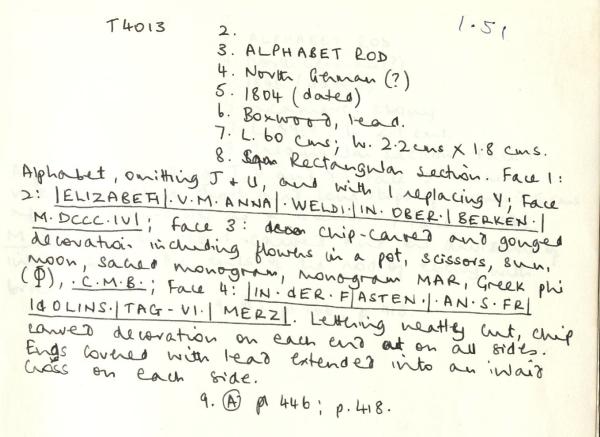 T4013 1.51
2.
3. ALPHABET ROD
4. North German (?)
5. 1804 (dated)
6. Boxwood, lead.
7. L. 60 cms; W. 2.2 cms X 1.8 cms.
8. Rectangular section. Face 1:
Alphabet, omitting J + U, and with 1 replacing Y; Face
2: |ELIZABETH|.V.M.ANNA|.WELDI.|IN.OBER.|BERKEN.|
M.DCCC.IV|; Face 3: chip-carved and gouged
decoration including flowers in a pot, scissors, sun,
moon, sacred monogram, monogram MAR, Greek phi
(Φ), .C.M.B.; Face 4: |IN.dER.F|ASTEN.|.AN.S.FR|
IdOLINS.|TAG-VI.| MERZ|. Lettering neatly cut, chip
carved decoration on each end on all sides.
Ends covered with lead extended into an inlaid
cross on each side.
9. (A) p 446; p.418.